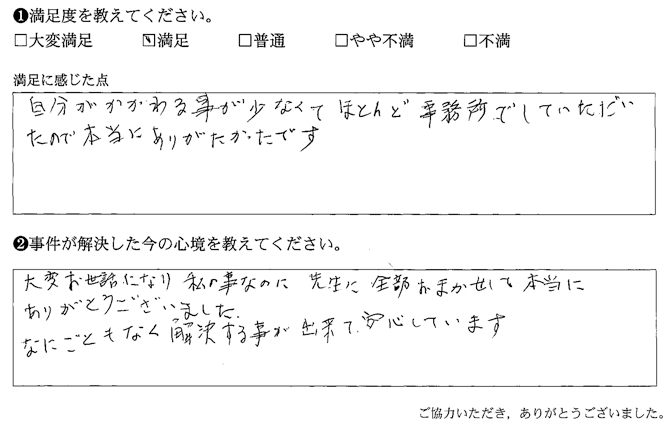 ❶満足度を教えてください。
□大変満足 ☑満足 □普通 □やや不満 □不満
満足に感じた点
自分がかかわる事が少なくて ほとんど 事務所でしていただい
たので本当にありがたかったです
❷事件が解決した今の心境を教えてください。
大変お世話になり 私の事なのに 先生に 全部おまかせして 本当に
ありがとうございました.
なにごともなく解決する事が出来て、安心しています
ご協力いただき，ありがとうございました。